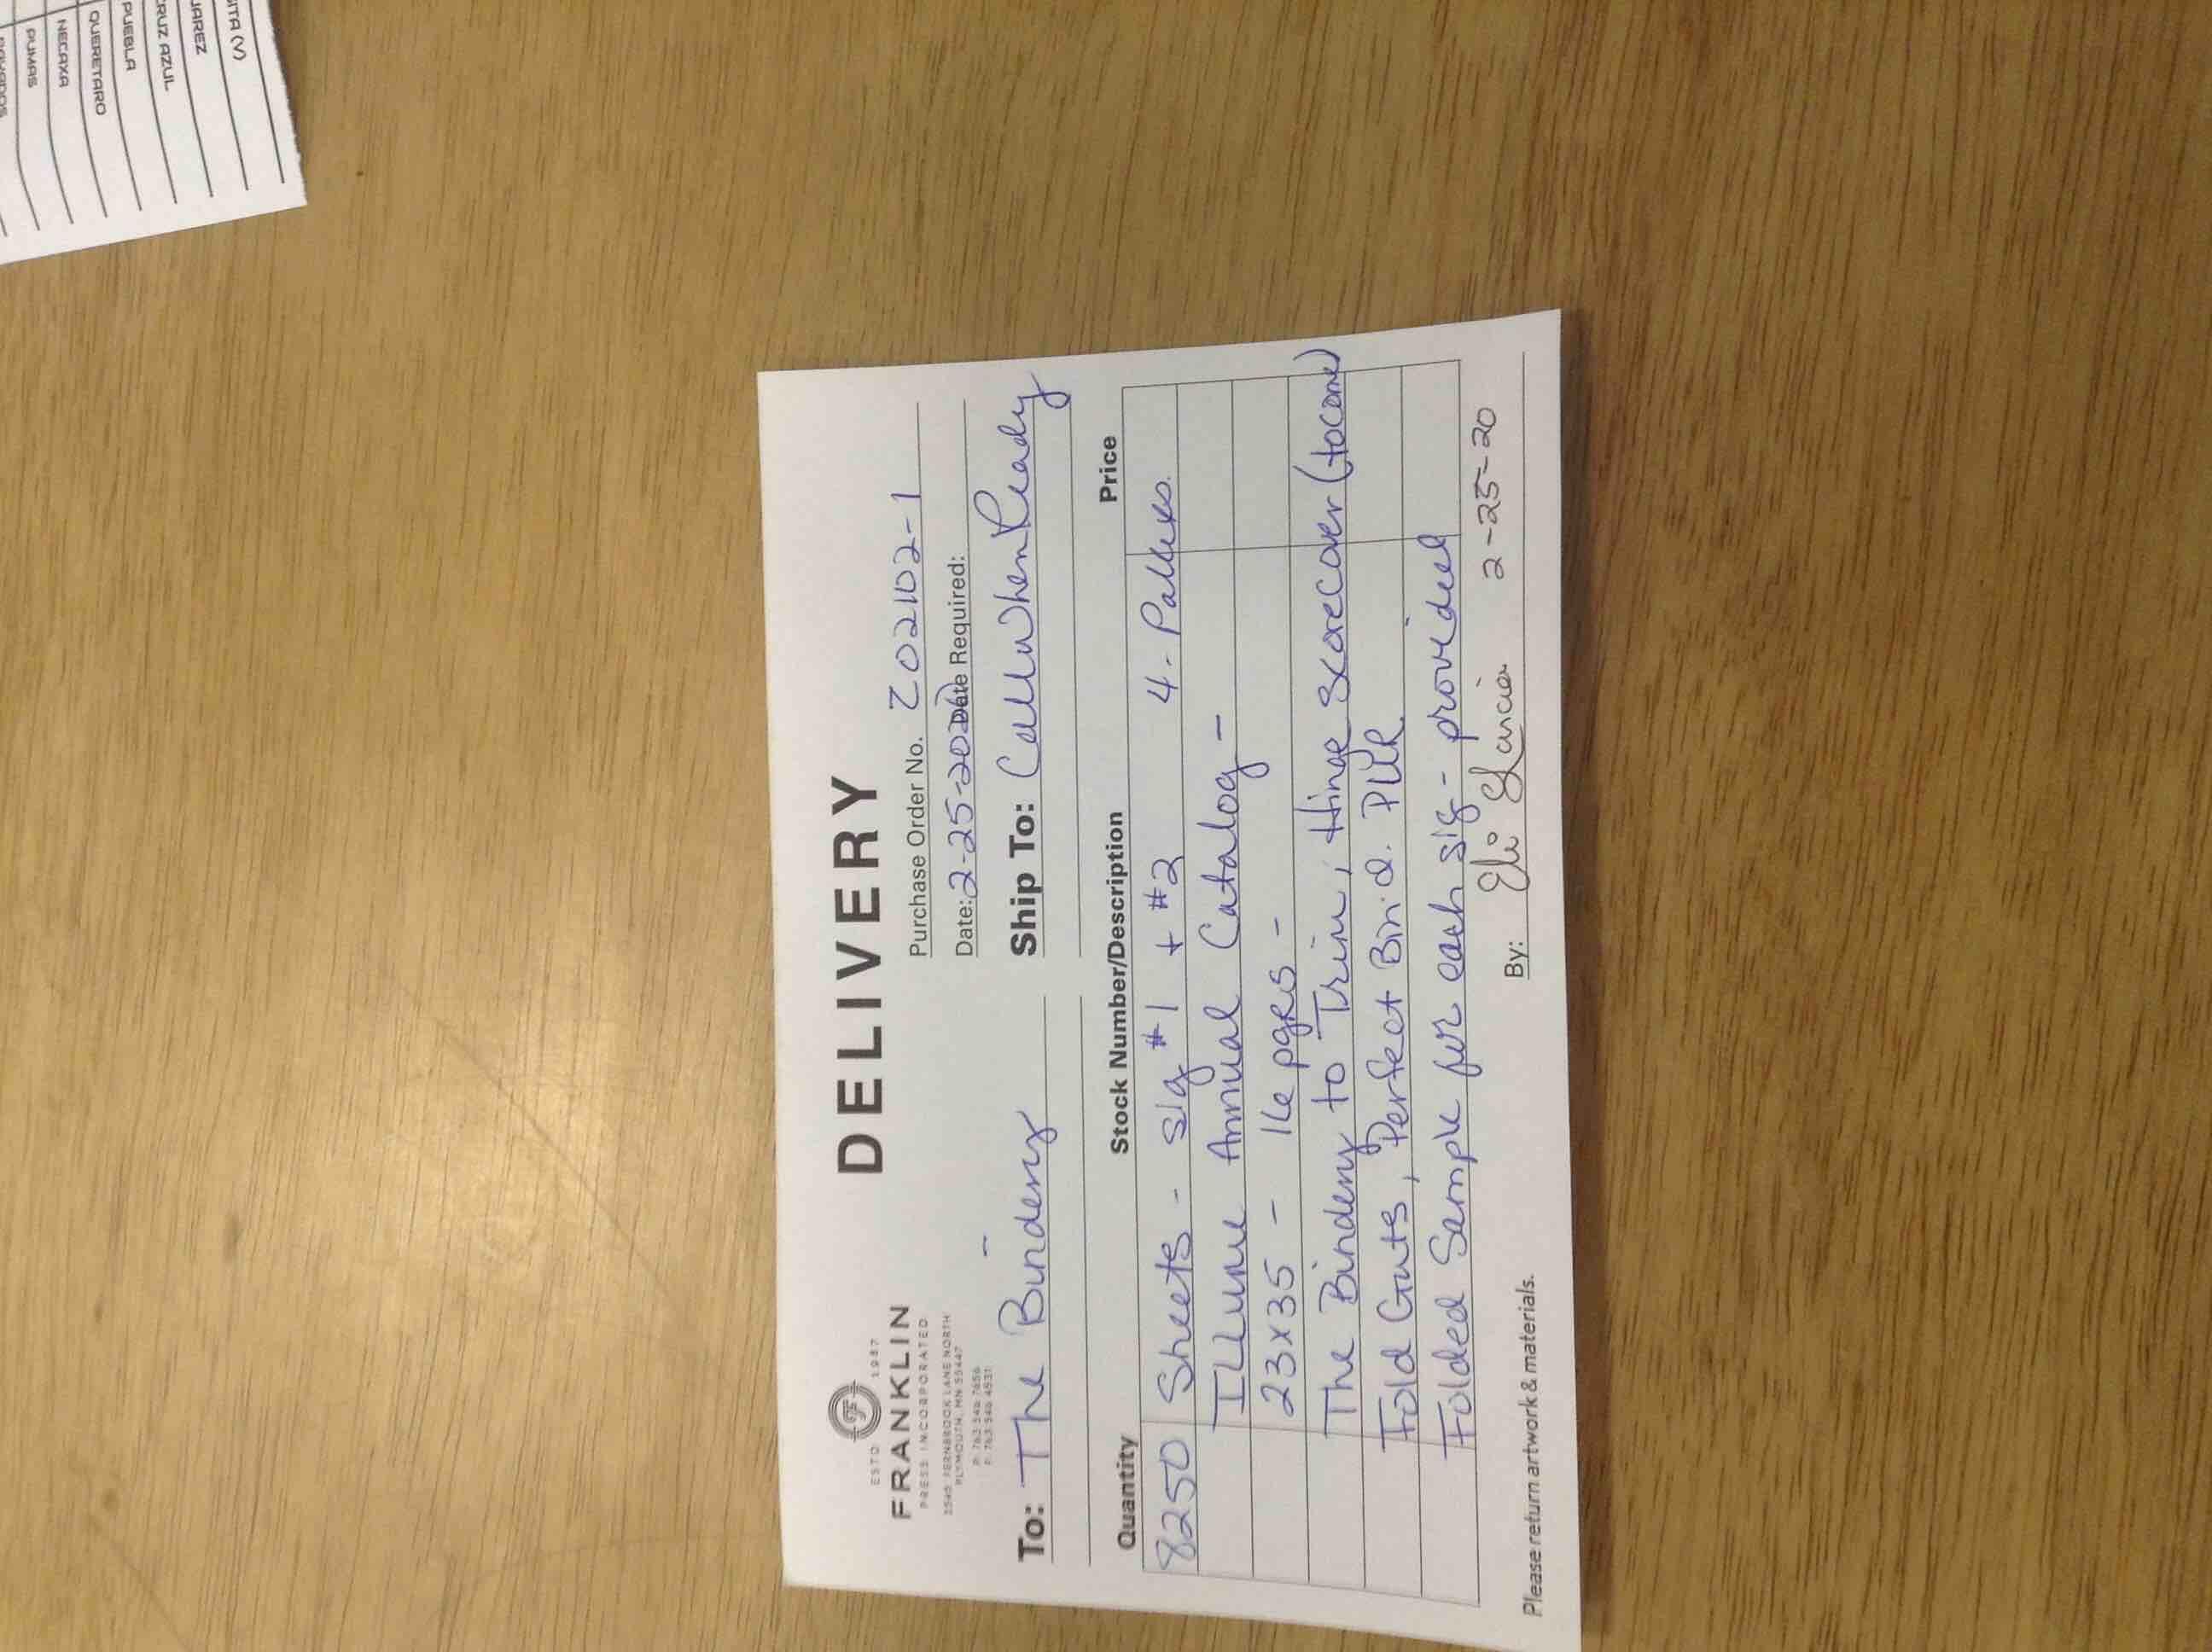 ITA (V)
JAREZ
CRUZ AZUL
PUEBLA
QUERETARO
NECAXA
PUMAS
DELIVERY
ESTD 1987
FRANKLIN
PRESS INCORPORATED
PLYMOUTH, MN 55447
Purchase Order No. 202102-1
Date: 2-25-2020 Date Required:
To: The Bindery
Ship To: Call When Ready
Quantity Stock Number/Description Price
8250 Sheets - sig #1 + #2 4 - Palletes.
ILLume Annual Catalog -
23x35 - 16 pgRS -
The Bindery to Trim, Hinge score cover (to come)
Fold Guts, Perfect Bind. PUR.
Folded Sample for each sig - provided
Please return artwork & materials.
By: 2-25-20